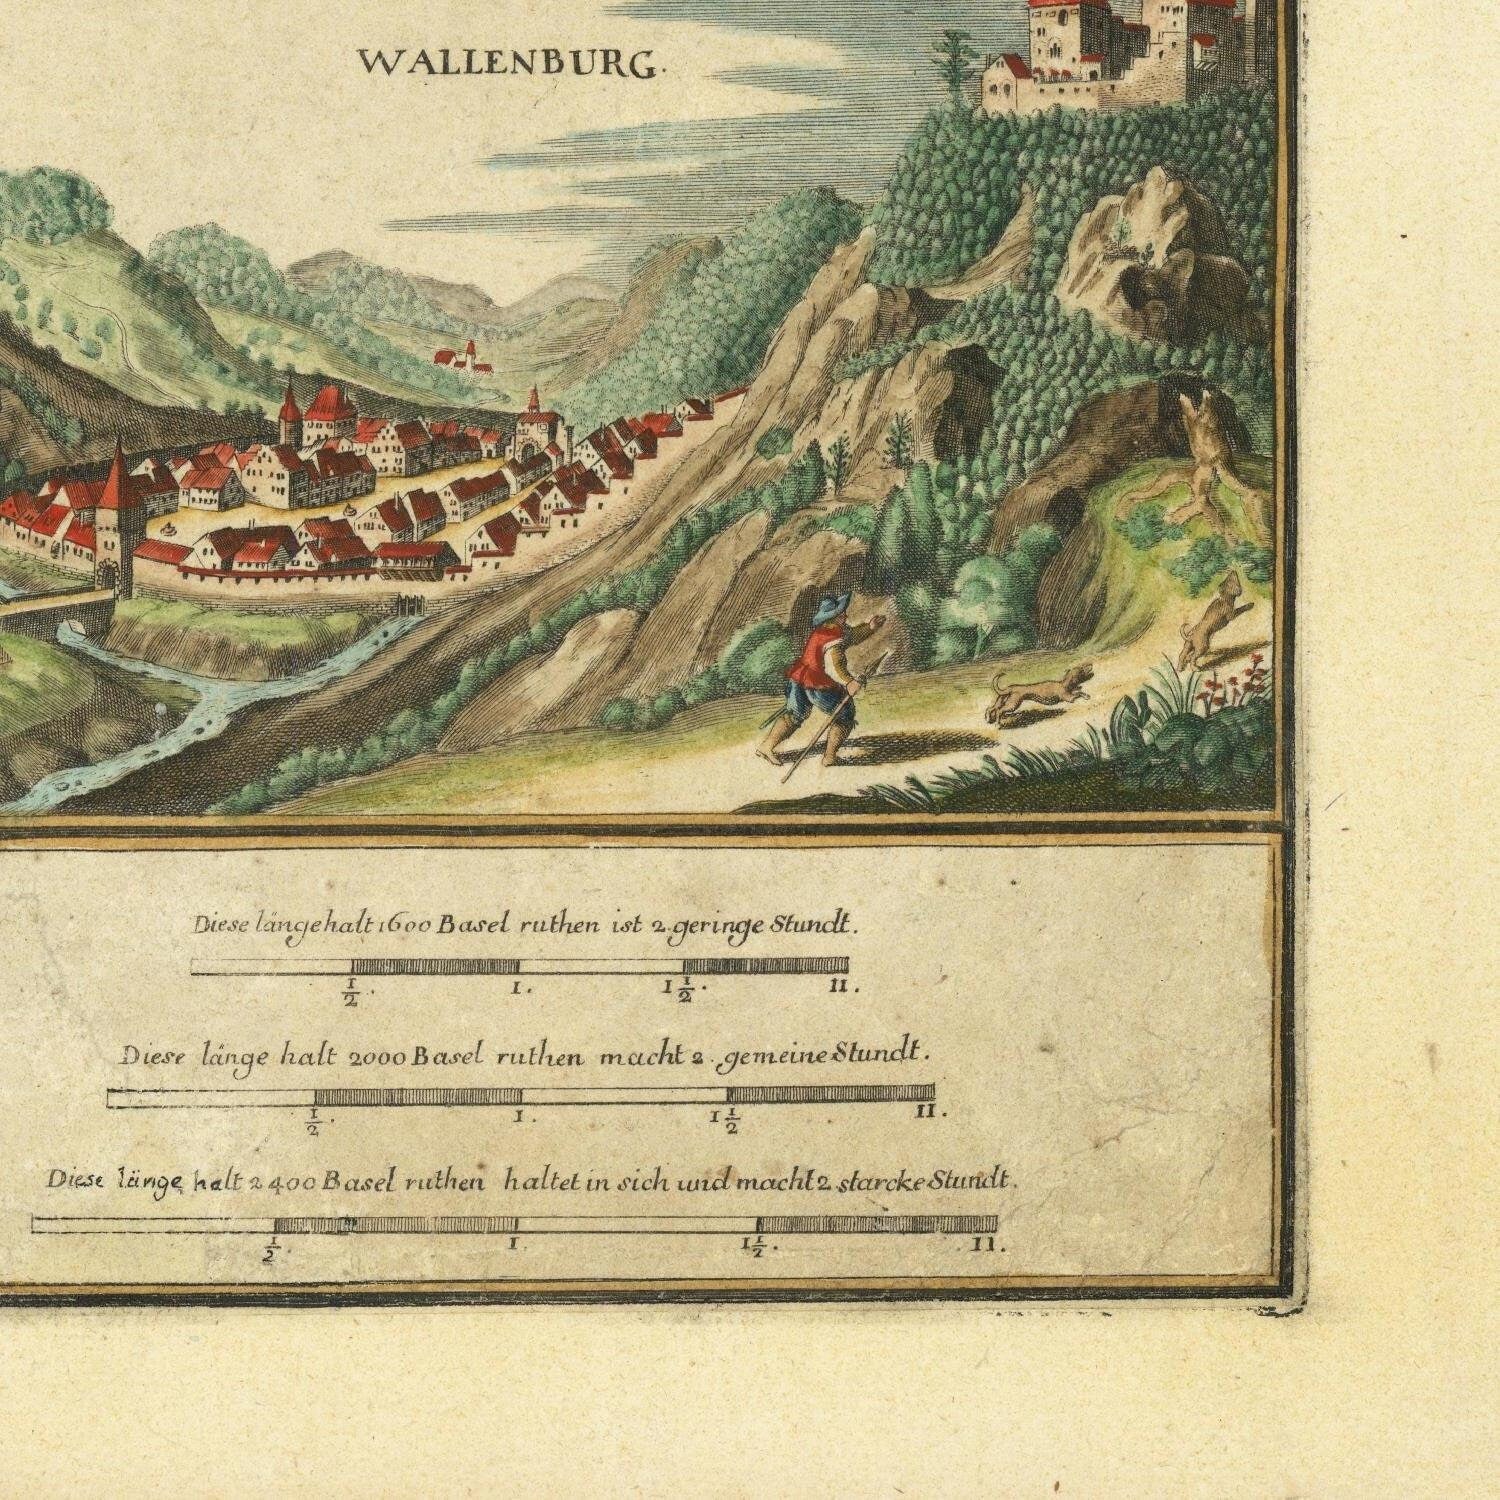 WALLENBURG.
Diese längehalt 1600 Basel ruthen ist 2. geringe Stundt.
1/2. I. I 1/2. II.
Diese länge halt 2000 Basel ruthen macht 2. gemeine Stundt.
1/2. I. I 1/2. II.
Diese länge halt 2400 Basel ruthen haltet in sich und macht 2 starcke Stundt.
1/2. I. I 1/2. II.